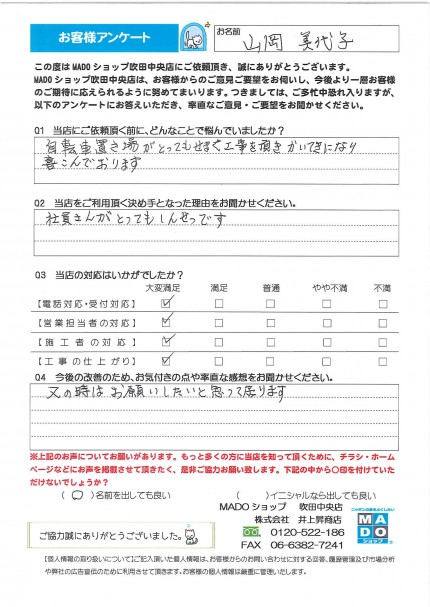 お客様アンケート
お名前
山岡 美代子
この度はMADOショップ吹田中央店にご依頼頂き、誠にありがとうございます。
MADOショップ吹田中央店は、お客様からのご意見ご要望をお伺いし、今後より一層お客様
のご期待に応えられるように努めてまいります。つきましては、ご多忙中恐れ入りますが、
以下のアンケートにお答えいただき、率直なご意見・ご要望をお聞かせください。
Q1 当店にご依頼頂く前に、どんなことで悩んでいましたか?
自転車置き場がとってもせまく工事を頂きかいてきになり
喜こんでおります
Q2 当店をご利用頂く決め手となった理由をお聞かせください。
社員さんがとってもしんせつです
Q3 当店の対応はいかがでしたか?
大変満足 満足 普通 やや不満 不満
【電話対応・受付対応】
【営業担当者の対応】
【施工者の対応】
【工事の仕上がり】
Q4 今後の改善のため、お気付きの点や率直な感想をお聞かせください。
又の時はお願いしたいと思って居ります
※上記のお声についてお願いがあります。もっと多くの方に当店を知って頂くために、チラシ・ホーム
ページなどにお声を掲載させて頂きたく、是非ご協力お願い致します。下記の中から〇印を付けていた
だけないでしょうか?
( 〇 )名前を出しても良い ( )イニシャルなら出しても良い
MADOショップ 吹田中央店
株式会社 井上昇商店
0120-522-186
FAX 06-6382-7241
MADO
ショップ
ご協力誠にありがとうございました。
【個人情報の取り扱いについて】ご記入頂いた個人情報は、お客様からのお問い合わせに対する回答、履歴管理及び市場分析
や弊社の広告宣伝のために利用させて頂きます。お客様の個人情報は厳重に管理いたします。